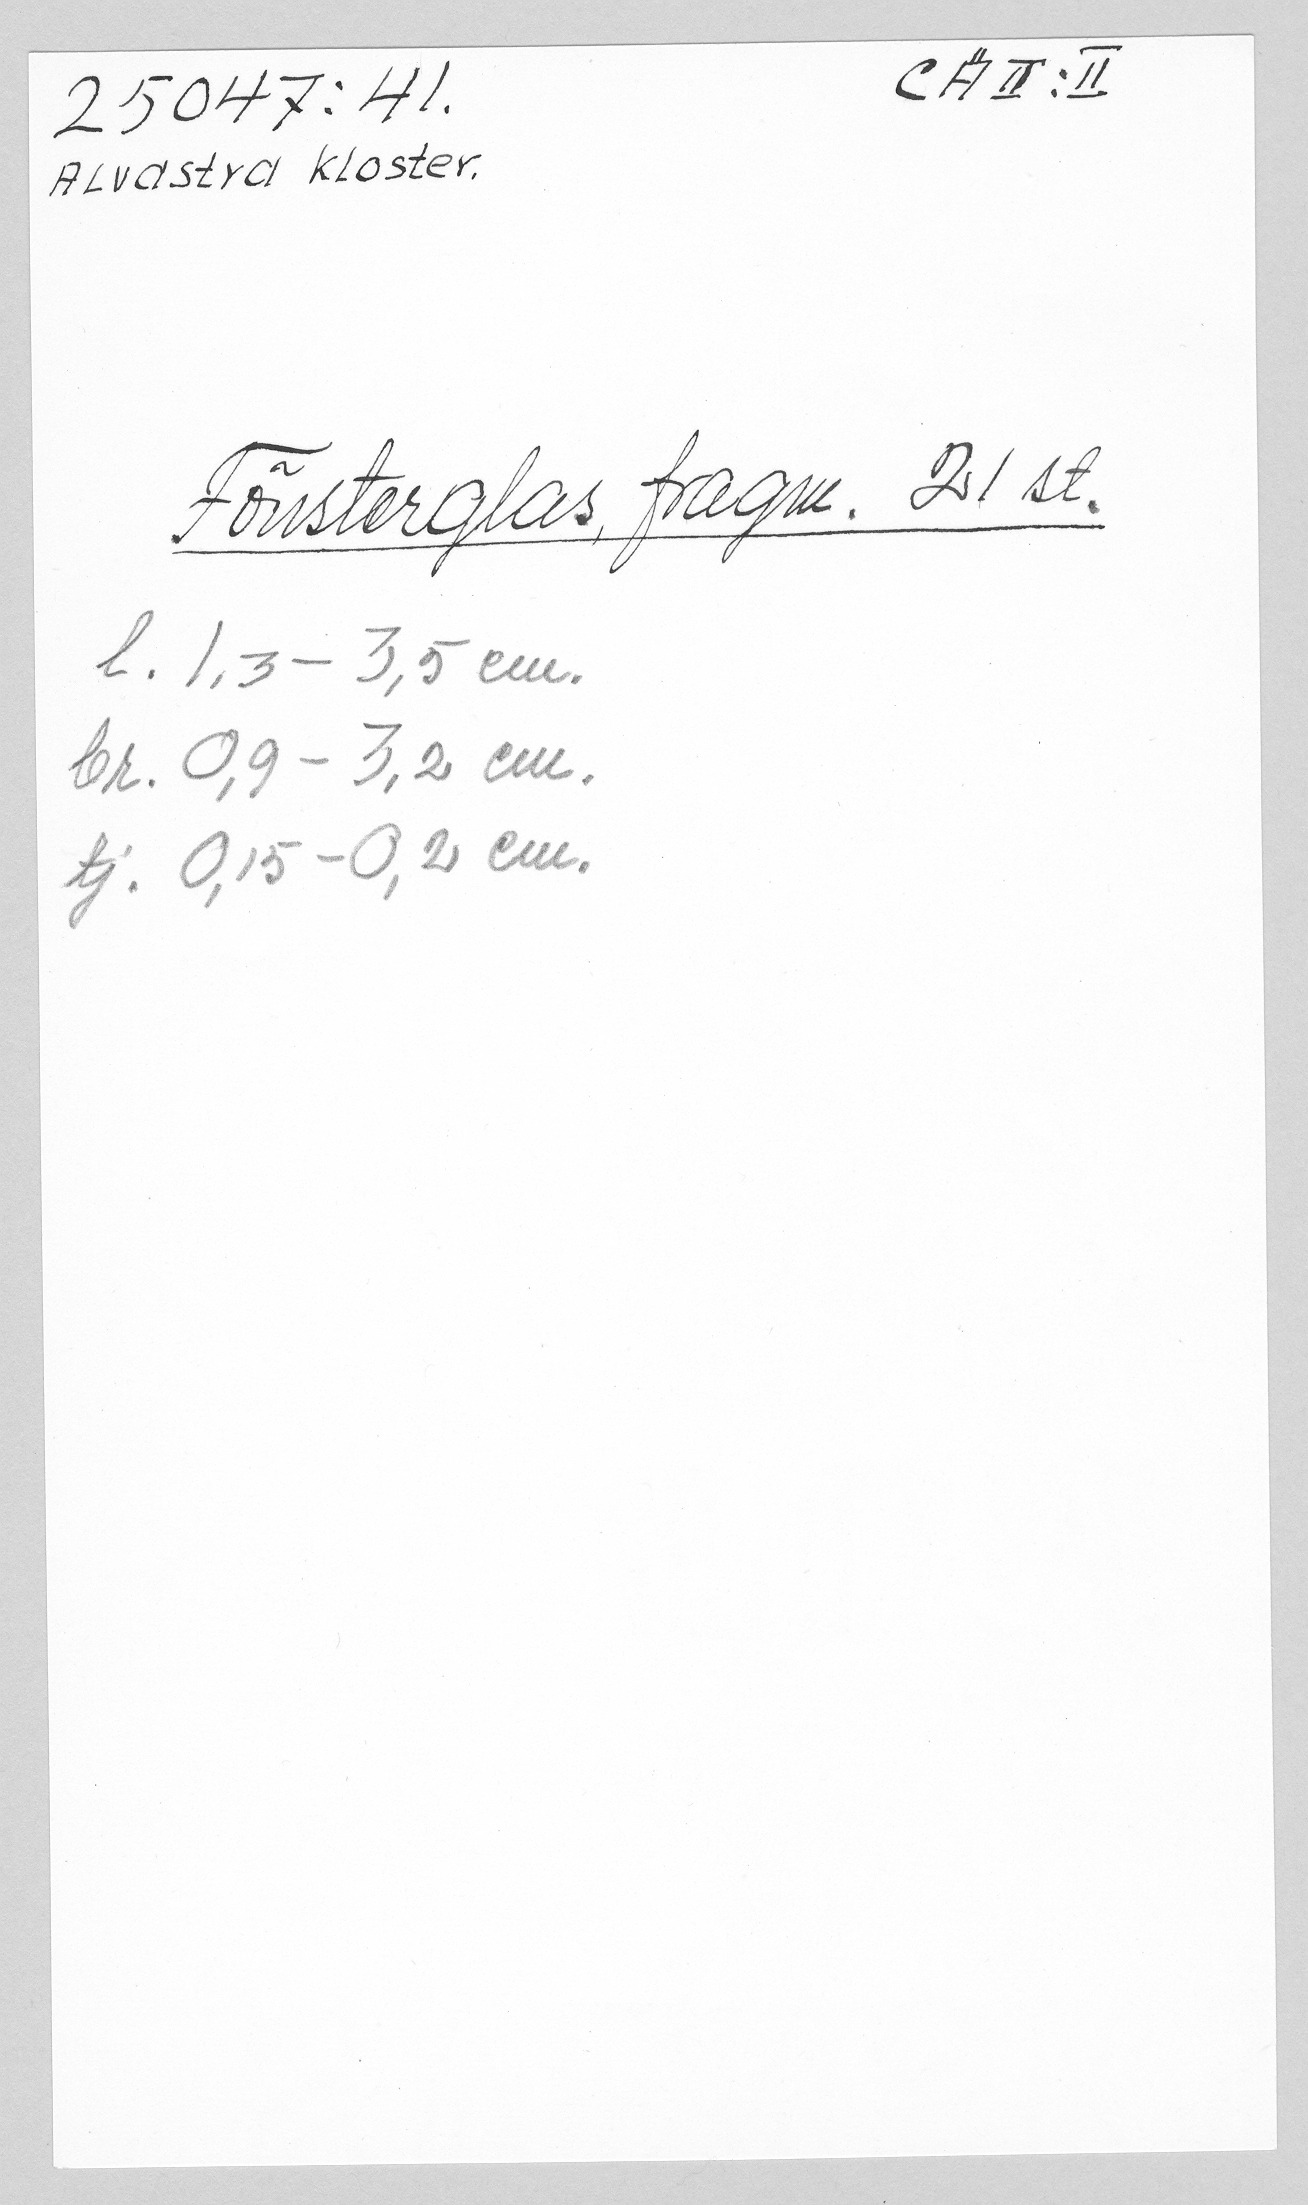 25047:41.
CÄ II:II
Alvastra kloster.
Fönsterglas, fragm. 21 st.
l. 1,3 – 3,5 cm.
br. 0,9 – 3,2 cm.
tj. 0,15 – 0,2 cm.